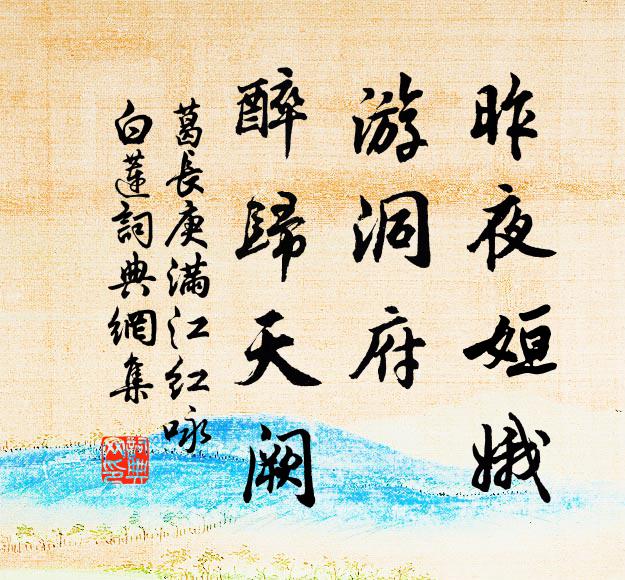 昨夜姮娥
游洞府
醉歸天闕
葛長庚满江红咏
白蓮詞典網集